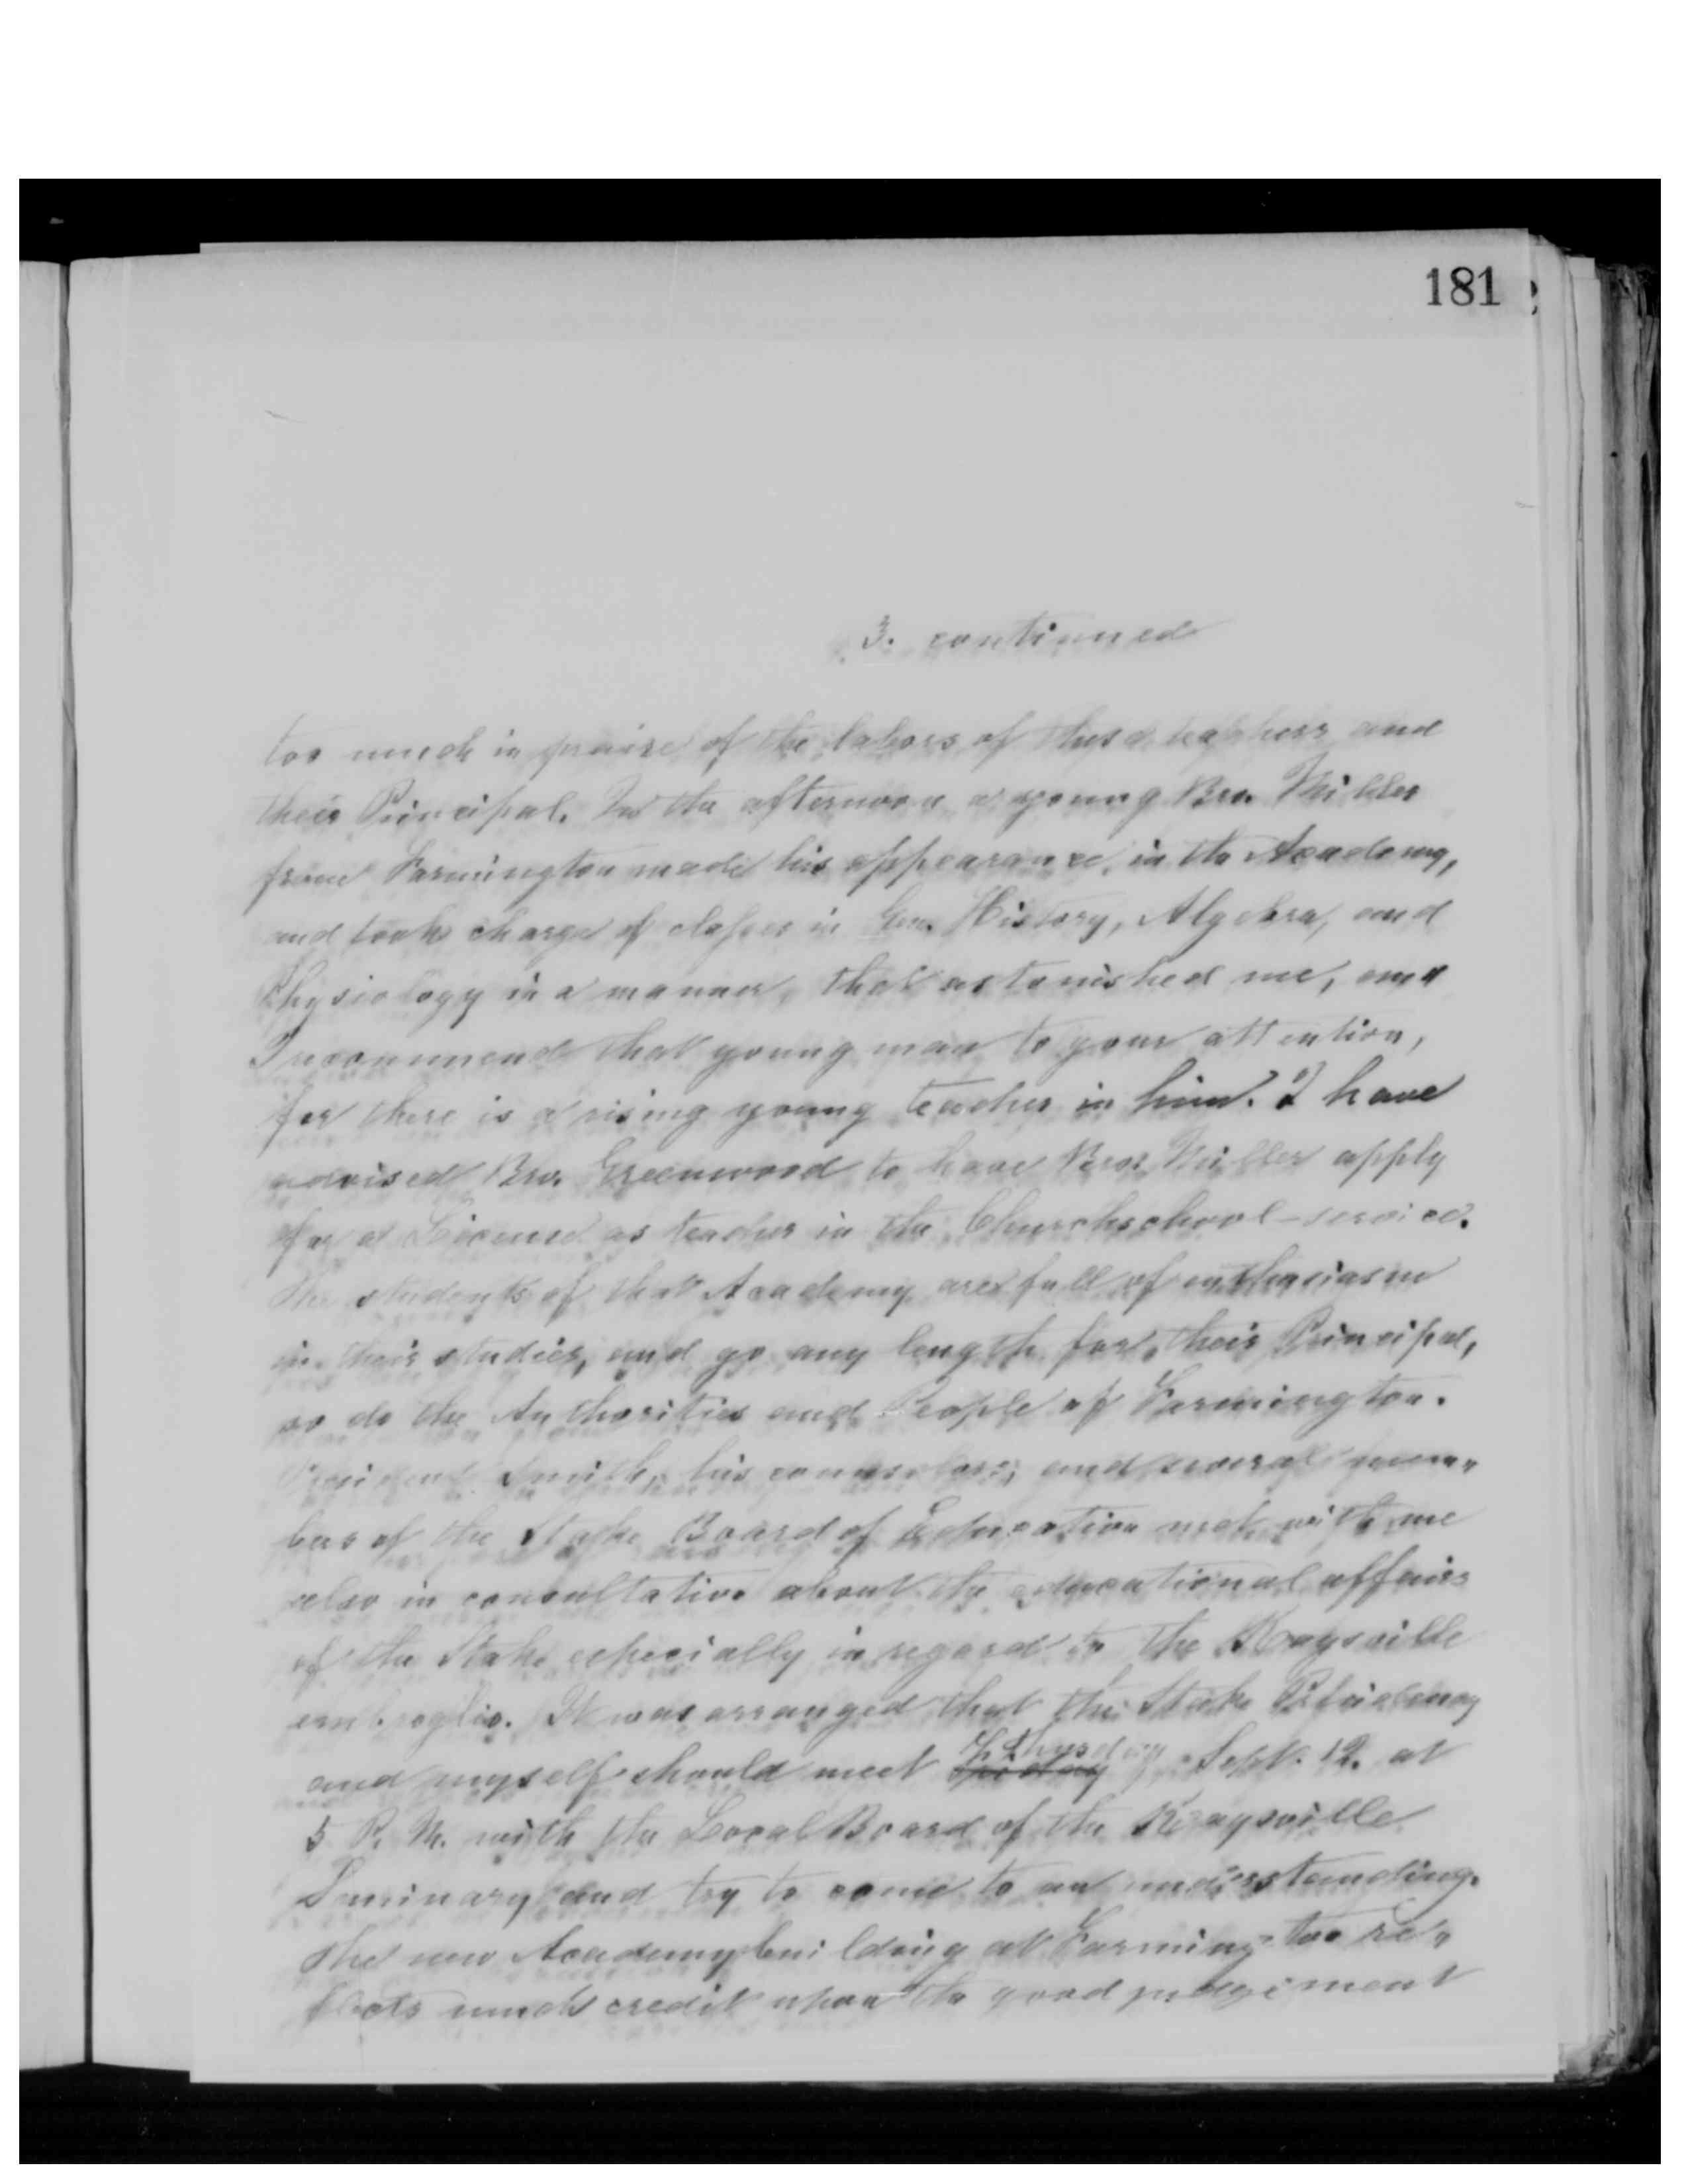 181
3. continued
too much in praise of the labors of these teachers and
their Principal. In the afternoon a young Bro. Miller
from Farmington made his appearance, in the Academy,
and took charge of classes in Gen. History, Algebra, and
Physiology in a manner, that astonished me, and
I recommend that young man to your attention,
for there is a rising young teacher in him. I have
advised Bro. Greenwood to have Bro. Miller apply
for a License as teacher in the Churchschool-service.
The students of that Academy are full of enthusiasm
in their studies, and go any length for their Principal,
so do the Authorities and People of Farmington.
President Smith, his counselors, and several mem-
bers of the Stake Board of Education met with me
also in consultation about the educational affairs
of the Stake especially in regard to the Kaysville
embroglio. It was arranged that the Stake Presidency
and myself should meet Thursday Sept. 12. at
5 P. M. with the Local Board of the Kaysville
Seminary and try to come to an understanding.
The new Academybuilding at Farmington re-
flects much credit upon the good judgement